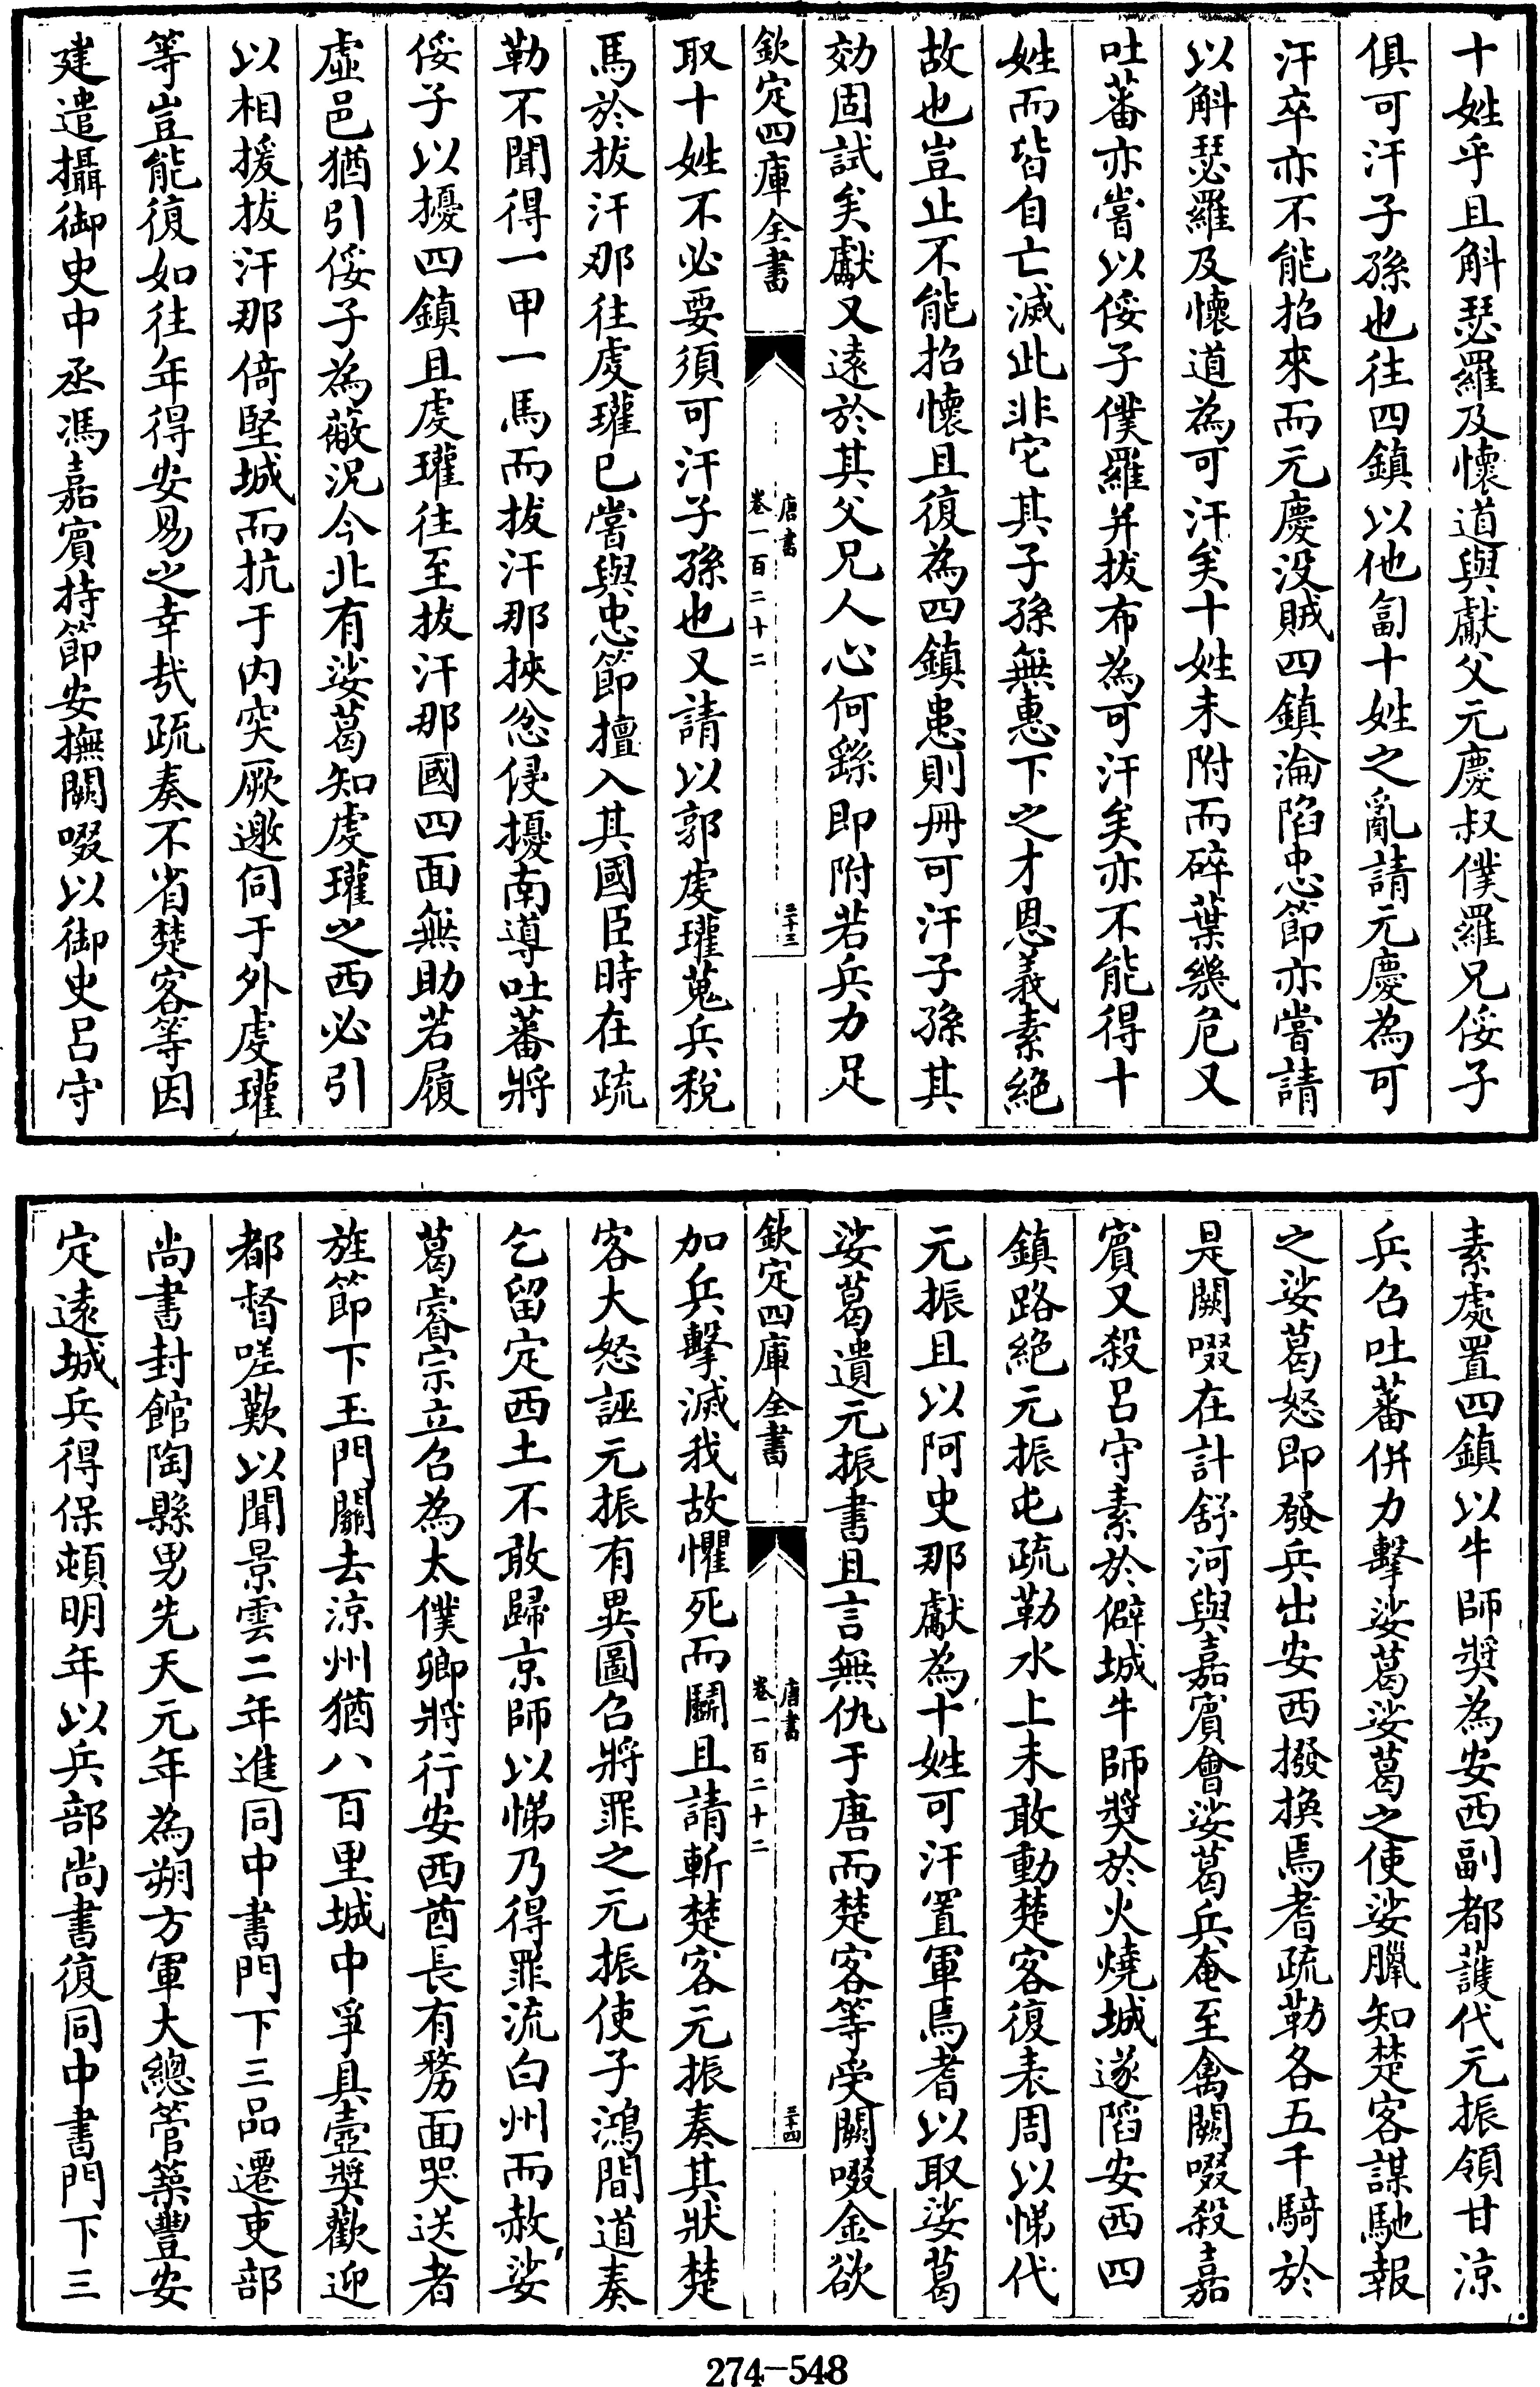 十姓乎且斛瑟羅及懷道與獻父元慶叔僕羅兄俀子
俱可汗子孫也往四鎮以他匐十姓之亂請元慶為可
汗卒亦不能招來而元慶没賊四鎮淪陷忠節亦嘗請
以斛瑟羅及懷道為可汗矣十姓未附而碎葉幾危又
吐蕃亦嘗以俀子僕羅并拔布為可汗矣亦不能得十
姓而皆自亡滅此非它其子孫無惠下之才恩義素絶
故也豈止不能招懷且復為四鎮患則冊可汗子孫其
効固試矣獻又遠於其父兄人心何繇即附若兵力足
欽定四庫全書
唐書
卷一百二十二
三十三
取十姓不必要須可汗子孫也又請以郭虔瓘蒐兵稅
馬於拔汗那往虔瓘已嘗與忠節擅入其國臣時在疏
勒不聞得一甲一馬而拔汗那挾忿侵擾南導吐蕃將
俀子以擾四鎮且虔瓘往至拔汗那國四面無助若履
虛邑猶引俀子為蔽況今北有娑葛知虔瓘之西必引
以相援拔汗那倚堅城而抗于内突厥邀伺于外虔瓘
等豈能復如往年得安易之幸㢤疏奏不省楚客等因
建遣攝御史中丞馮嘉賓持節安撫闕啜以御史呂守
素處置四鎮以牛師奬為安西副都護代元振領甘涼
兵召吐蕃併力擊娑葛娑葛之使娑臘知楚客謀馳報
之娑葛怒即發兵出安西撥換焉耆疏勒各五千騎於
是闕啜在計舒河與嘉賓會娑葛兵奄至禽闕啜殺嘉
賓又殺呂守素於僻城牛師奬於火燒城遂陷安西四
鎮路絶元振屯疏勒水上未敢動楚客復表周以悌代
元振且以阿史那獻為十姓可汗置軍焉耆以取娑葛
娑葛遺元振書且言無仇于唐而楚客等受闕啜金欲
欽定四庫全書
唐書
卷一百二十二
三十四
加兵擊滅我故懼死而鬭且請斬楚客元振奏其狀楚
客大怒誣元振有異圖召將罪之元振使子鴻間道奏
乞留定西土不敢歸京師以悌乃得罪流白州而赦娑
葛睿宗立召為太僕卿將行安西酋長有剺面哭送者
旌節下玉門關去涼州猶八百里城中爭具壺奬歡迎
都督嗟歎以聞景雲二年進同中書門下三品遷吏部
尚書封館陶縣男先天元年為朔方軍大總管築豐安
定遠城兵得保頓明年以兵部尚書復同中書門下三
274-548